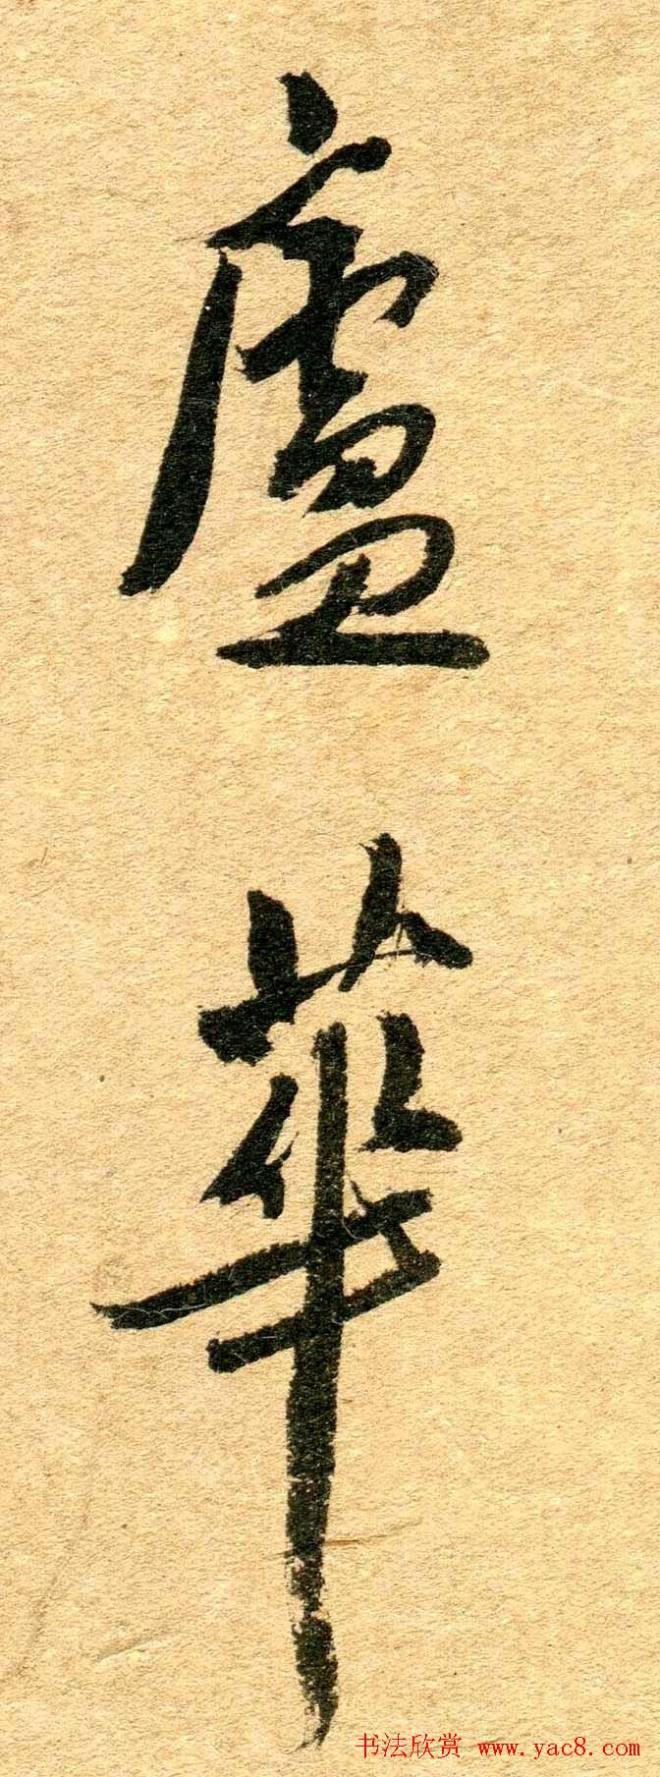 盧
華
书法欣赏 www.yac8.com